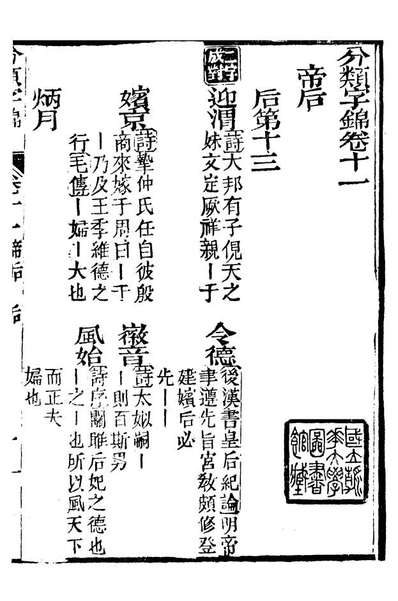 分類字錦卷十一
帝后
后第十三
二字成對
迎渭
詩大邦有子俔天之
妹文定厥祥親丨于
令德
後漢書皇后紀論明帝
聿遵先旨宮教頗修登
建嬪后必
先丨丨
嬪京
詩摯仲氏任自彼殷
商來嫁于周曰丨于
丨乃及王季維德之
行毛傳丨婦丨大也
徽音
詩太姒嗣丨
丨則百斯男
風始
詩序關雎后妃之德也
丨之丨也所以風天下
而正夫
婦也
炳月
分類字錦
卷十一 帝后 后
國立清華大學圖書館藏